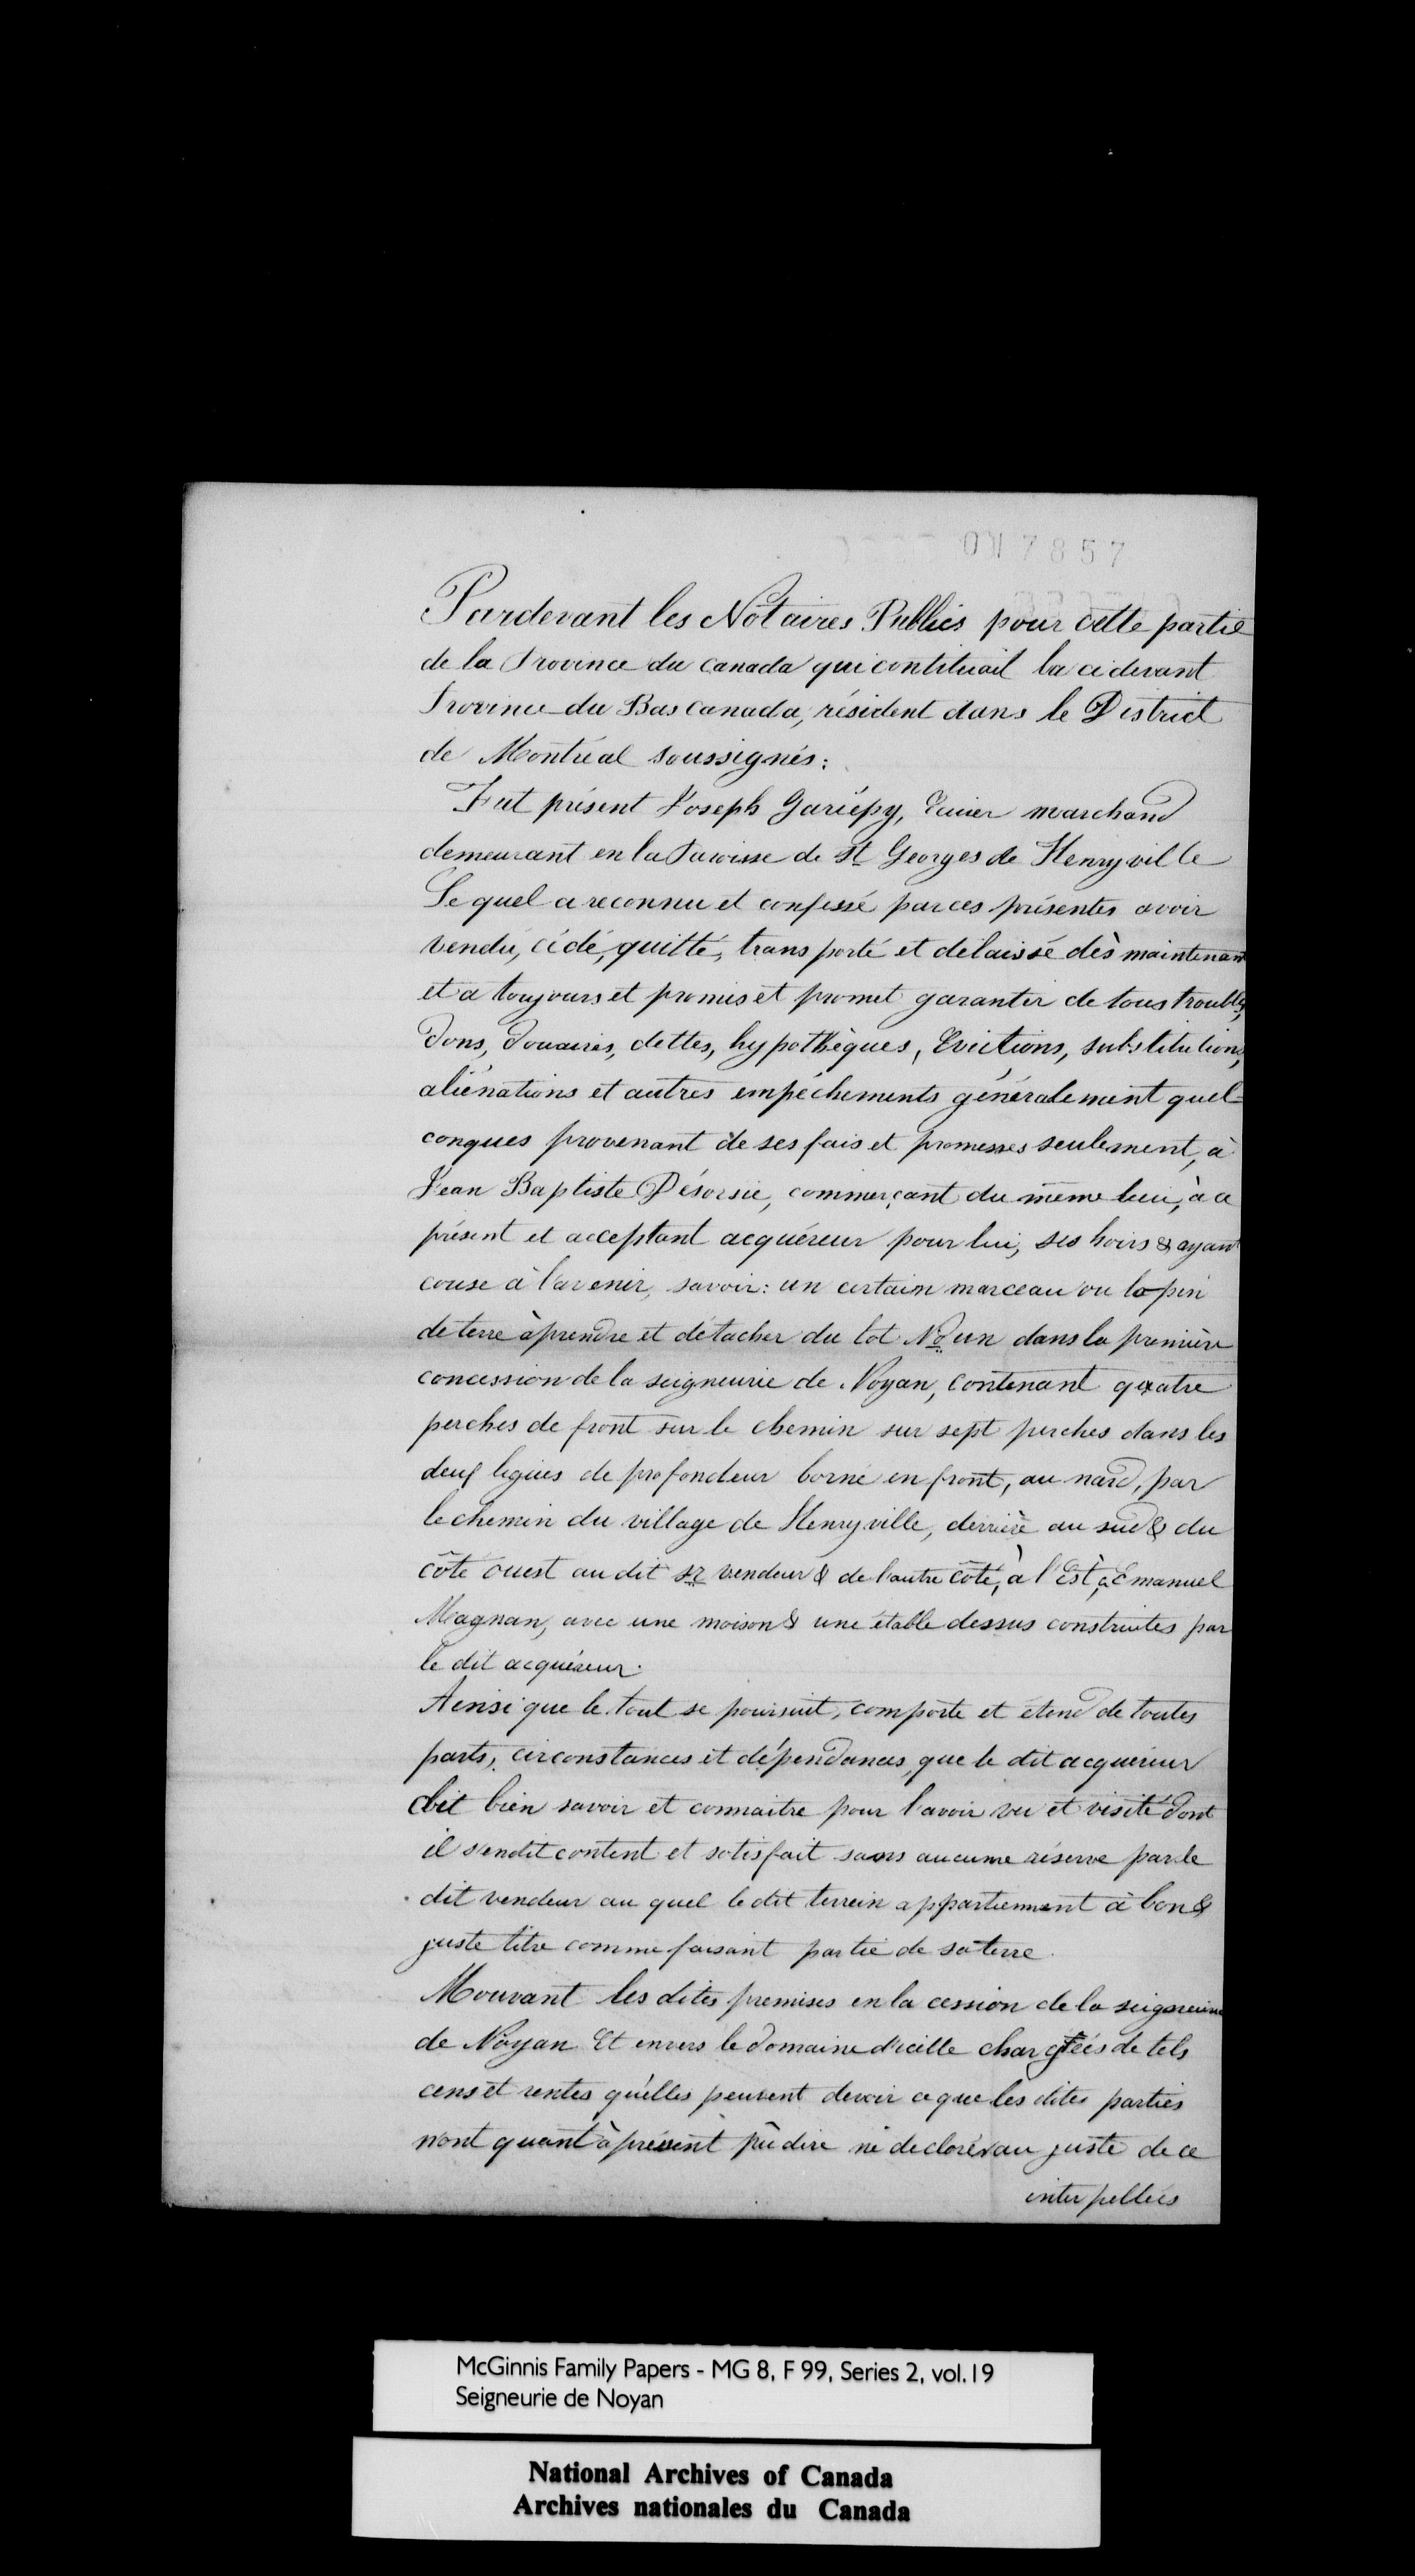 017857
Pardevant les Notaires Publics pour cette partie
de la Province du Canada qui contituait la cidevant
Province du Bas Canada, résident dans le District
de Montréal soussignés:
Fut présent Joseph Gariépy, Ecuier marchand
demeurant en la Paroisse de St Georges de Henryville
Le quel a reconnu et confessé par ces présentes avoir
vendu, cédé, quitté, transporté et délaissé dès maintenant
et a toujours et promis et promet garantir de tous troubles,
dons, douaires, dettes, hypothèques, Evictions, substitutions,
aliénations et autres empéchements généralement quel-
conques provenant de ses fais et promesses seulement, à
Jean Baptiste Désorsie, commerçant du même lieu, à ce
présent et acceptant acquéreur pour lui, ses hoirs & ayant
couse à l'avenir, savoir: un certain marceau ou lopin
de terre à prendre et détacher du lot No un dans la première
concession de la seigneurie de Noyan, contenant quatre
perches de front sur le chemin sur sept perches dans les
deux ligues de profondeur borné en front, au nord, par
le chemin du village de Henryville, derrière au sud & du
côté ouest au dit sr vendeur & de l'autre côté, à l'Est, à Emanuel
Magnan, avec une maison & une étable dessus construites par
le dit acquéreur.
Ainsi que le tout se poursuit, comporte et étend de toutes
parts, circonstances et dépendances, que le dit acquéreur
dit bien savoir et connaitre pour l'avoir vu et visité dont
il s'endit content et satisfait sans aucume réserve par le
dit vendeur au quel le dit terrein appartiennent à bon &
juste titre comme faisant partie de sa terre.
Mouvant les dites premises en la cession de la seigneurie
de Noyan Et envers le domaine d'icelle chargées de tels
cens et rentes qu'elles peuvent devoir ce que les dites parties
n'ont quant à présent pu dire ni declorer au juste de ce
interpellées
McGinnis Family Papers - MG 8, F 99, Series 2, vol.19
Seigneurie de Noyan
National Archives of Canada
Archives nationales du Canada